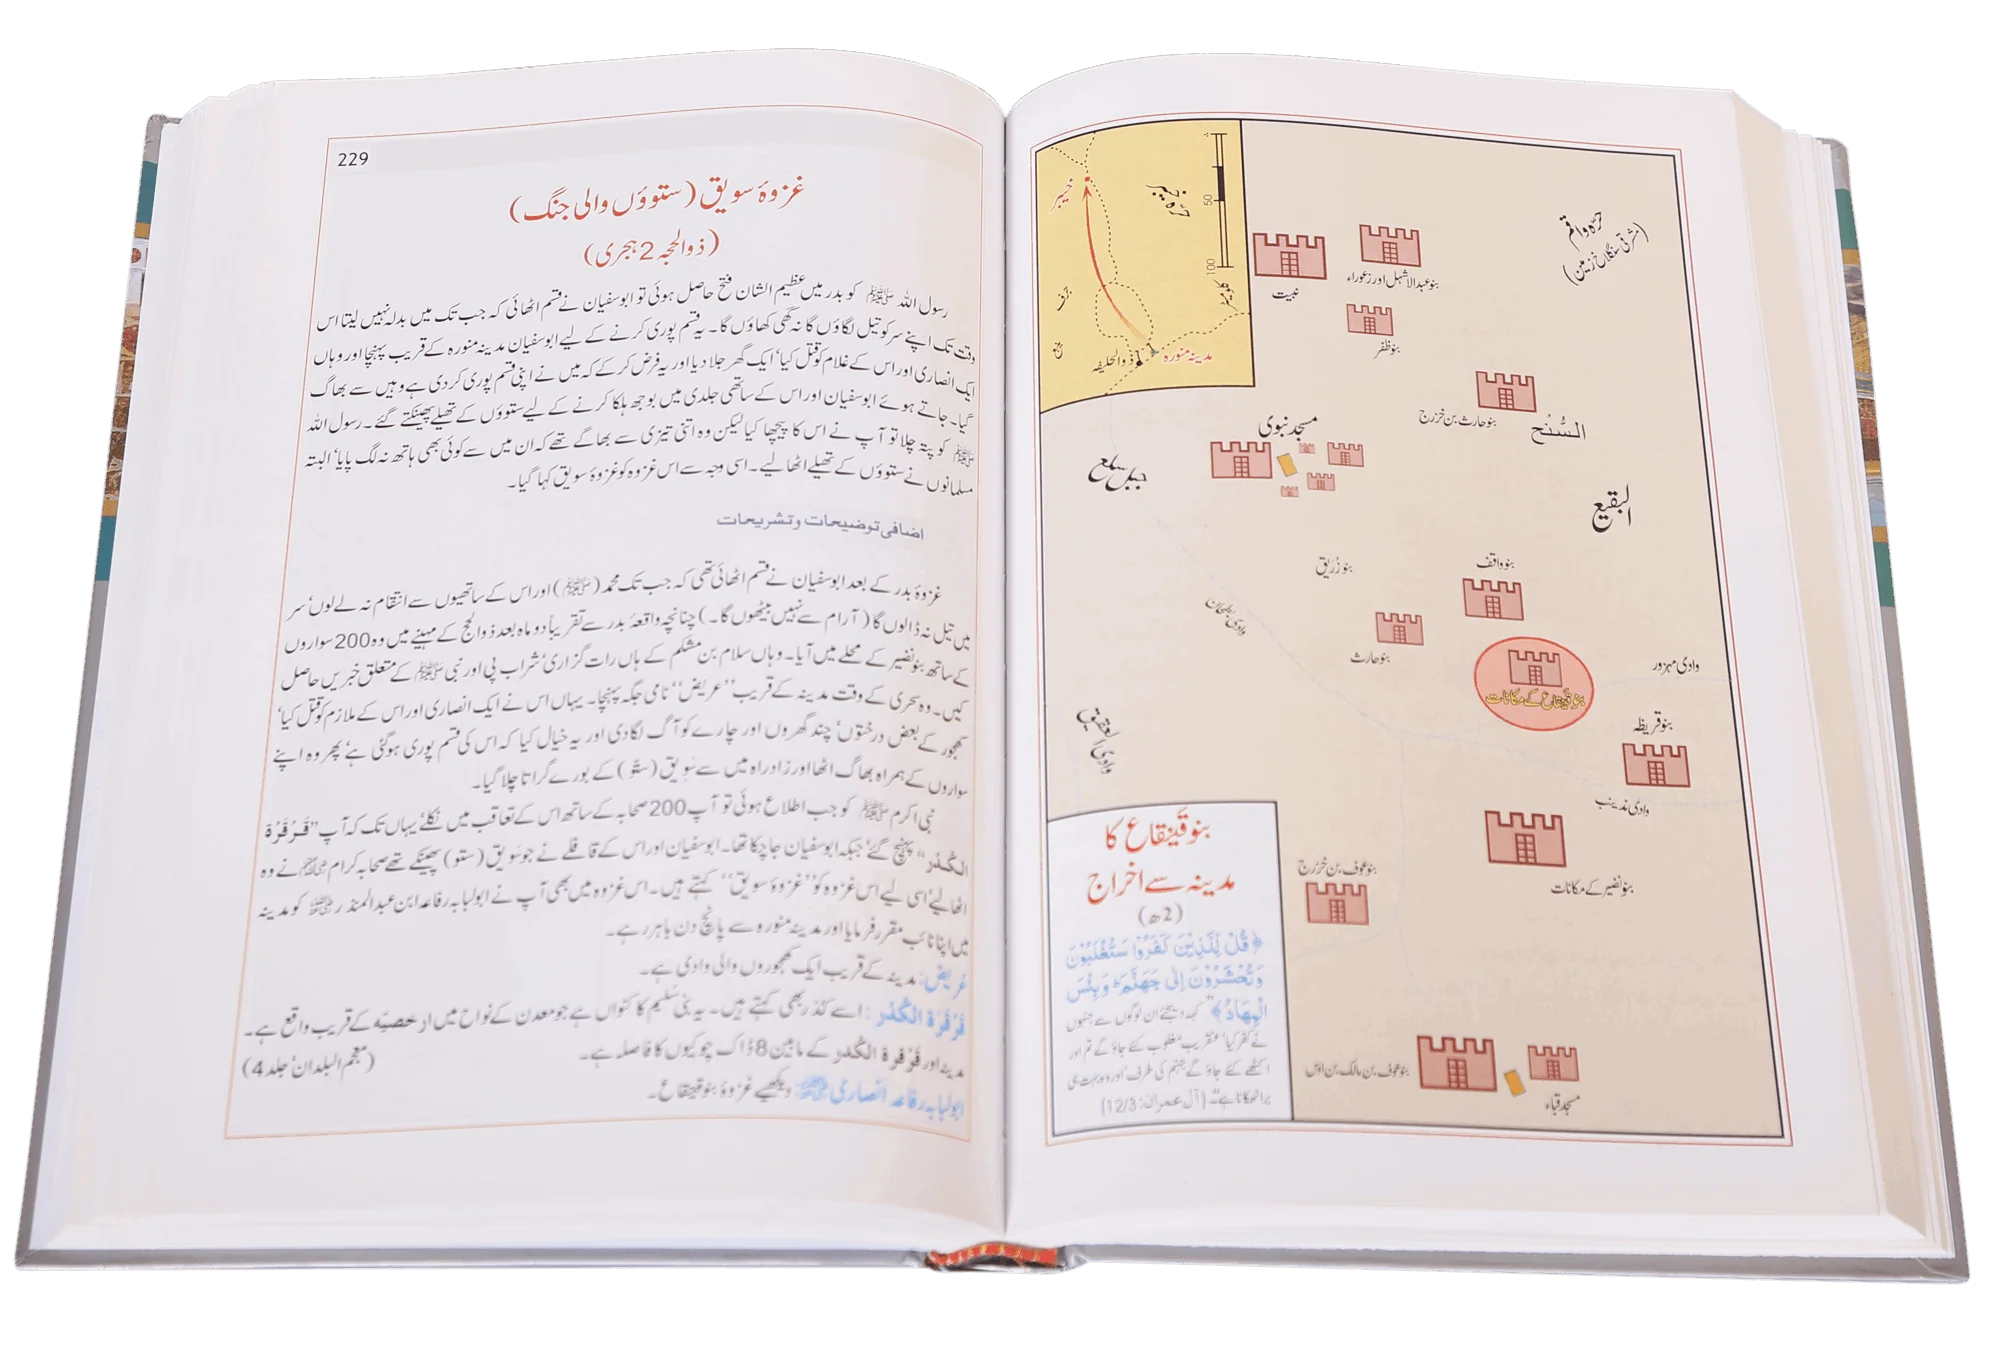 خیبر
حرّہ خیبر
50
100
کلومیٹر
جرف
ینبع
ذوالحلیفہ
مدینہ منورہ
حرّہ واقم
(مشرقی سنگلاخ زمین)
نبیت
بنو عبدالاشہل اور زعوراء
بنو ظفر
بنو حارث بن خزرج
السُّنُح
مسجد نبوی
جبل سلع
البقیع
بنو زُریق
بنو واقف
وادی بطحان
بنو حارث
بنو قینقاع کے مکانات
وادی مہزور
بنو قریظہ
وادی العقیق
وادی مذینب
بنو نضیر کے مکانات
بنو عوف بن خزرج
بنو عوف بن مالک بن اوس
مسجد قباء
بنو قینقاع کا
مدینہ سے اخراج
(2ھ)
﴿قُلْ لِلَّذِيْنَ كَفَرُوْا سَتُغْلَبُوْنَ
وَتُحْشَرُوْنَ اِلٰى جَهَنَّمَ ۭ وَبِئْسَ
الْمِهَادُ﴾ ”کہہ دیجئے ان لوگوں سے جنہوں
نے کفر کیا‘ عنقریب مغلوب کئے جاؤ گے تم اور
اکٹھے کئے جاؤ گے جہنم کی طرف‘ اور وہ بہت ہی
برا ٹھکانا ہے“۔ (آل عمران: 12/3)
229
غزوۂ سویق (ستوؤں والی جنگ)
(ذوالحجہ 2 ہجری)
رسول اللہ ﷺ کو بدر میں عظیم الشان فتح حاصل ہوئی تو ابوسفیان نے قسم اٹھائی کہ جب تک میں بدلہ نہیں لیتا اس
وقت تک اپنے سر کو تیل لگاؤں گا نہ گھی کھاؤں گا۔ یہ قسم پوری کرنے کے لیے ابوسفیان مدینہ منورہ کے قریب پہنچا اور وہاں
ایک انصاری اور اس کے غلام کو قتل کیا‘ ایک گھر جلا دیا اور یہ فرض کر کے کہ میں نے اپنی قسم پوری کر دی ہے وہیں سے بھاگ
گیا۔ جاتے ہوئے ابوسفیان اور اس کے ساتھی جلدی میں بوجھ ہلکا کرنے کے لیے ستوؤں کے تھیلے پھینکتے گئے۔ رسول اللہ
ﷺ کو پتہ چلا تو آپ نے اس کا پیچھا کیا لیکن وہ اتنی تیزی سے بھاگے تھے کہ ان میں سے کوئی بھی ہاتھ نہ لگ پایا‘ البتہ
مسلمانوں نے ستوؤں کے تھیلے اٹھا لیے۔ اسی وجہ سے اس غزوہ کو غزوۂ سویق کہا گیا۔
اضافی توضیحات و تشریحات
غزوۂ بدر کے بعد ابوسفیان نے قسم اٹھائی تھی کہ جب تک محمد (ﷺ) اور اس کے ساتھیوں سے انتقام نہ لے لوں‘ سر
میں تیل نہ ڈالوں گا (آرام سے نہیں بیٹھوں گا۔) چنانچہ واقعۂ بدر سے تقریباً دو ماہ بعد ذوالحج کے مہینے میں وہ 200 سواروں
کے ساتھ بنو نضیر کے محلے میں آیا۔ وہاں سلام بن مشکم کے ہاں رات گزاری‘ شراب پی اور نبی ﷺ کے متعلق خبریں حاصل
کیں۔ وہ سحری کے وقت مدینہ کے قریب ”عریض“ نامی جگہ پہنچا۔ یہاں اس نے ایک انصاری اور اس کے ملازم کو قتل کیا‘
کھجور کے بعض درختوں‘ چند گھروں اور چارے کو آگ لگا دی اور یہ خیال کیا کہ اس کی قسم پوری ہو گئی ہے‘ پھر وہ اپنے
سواروں کے ہمراہ بھاگ اٹھا اور زاد راہ میں سے سَوِیق (ستّو) کے بورے گراتا چلا گیا۔
نبی اکرم ﷺ کو جب اطلاع ہوئی تو آپ 200 صحابہ کے ساتھ اس کے تعاقب میں نکلے‘ یہاں تک کہ آپ ”قَرْقَرَۃ
الکُدْر“ پہنچ گئے‘ جبکہ ابوسفیان جا چکا تھا۔ ابوسفیان اور اس کے قافلے نے جو سَوِیق (ستو) پھینکے تھے صحابہ کرام نے وہ
اٹھا لیے‘ اسی لیے اس غزوہ کو ”غزوۂ سویق“ کہتے ہیں۔ اس غزوہ میں بھی آپ نے ابولبابہ رفاعہ ابن عبدالمنذر کو مدینہ
میں اپنا نائب مقرر فرمایا اور مدینہ منورہ سے پانچ دن باہر رہے۔
عُریض: مدینہ کے قریب ایک کھجوروں والی وادی ہے۔
قَرْقَرَۃ الکُدْر: اسے کُدْر بھی کہتے ہیں۔ یہ بنی سُلیم کا کنواں ہے جو معدن کے نواح میں ارحضیہ کے قریب واقع ہے۔
مدینہ اور قَرْقَرۃ الکُدر کے مابین 8 ڈاک چوکیوں کا فاصلہ ہے۔ (معجم البلدان‘ جلد 4)
ابولبابہ رفاعہ انصاری: دیکھیے غزوۂ بنو قینقاع۔